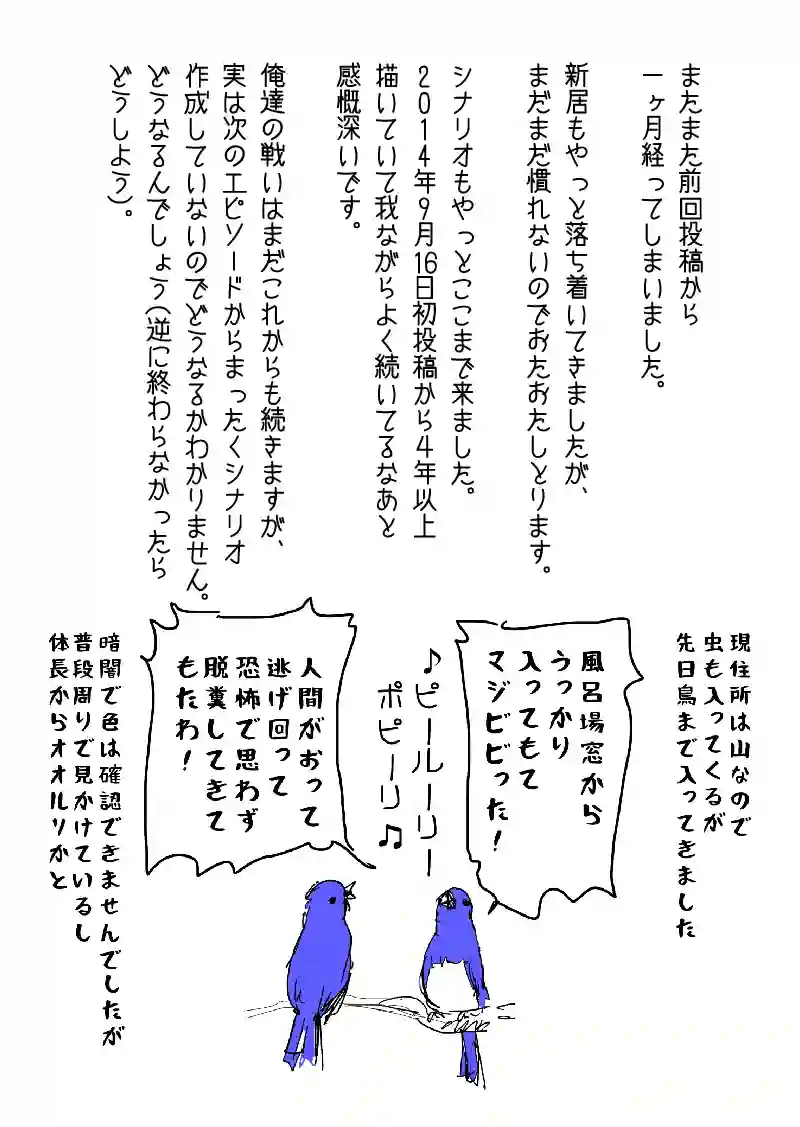 またまた前回投稿から
一ヶ月経ってしまいました。
新居もやっと落ち着いてきましたが、
まだまだ慣れないのでおたおたしとります。
シナリオもやっとここまで来ました。
2014年9月16日初投稿から4年以上
描いていて我ながらよく続いてるなあと
感慨深いです。
俺達の戦いはまだこれからも続きますが、
実は次のエピソードからまったくシナリオ
作成していないのでどうなるかわかりません。
どうなるんでしょう(逆に終わらなかったら
どうしよう)。
現住所は山なので
虫も入ってくるが
先日鳥まで入ってきました
風呂場窓から
うっかり
入ってもて
マジビビった!
♪ピールーリー
ポピーリ♫
人間がおって
逃げ回って
恐怖で思わず
脱糞してきて
もたわ!
暗闇で色は確認できませんでしたが
普段周りで見かけているし
体長からオオルリかと